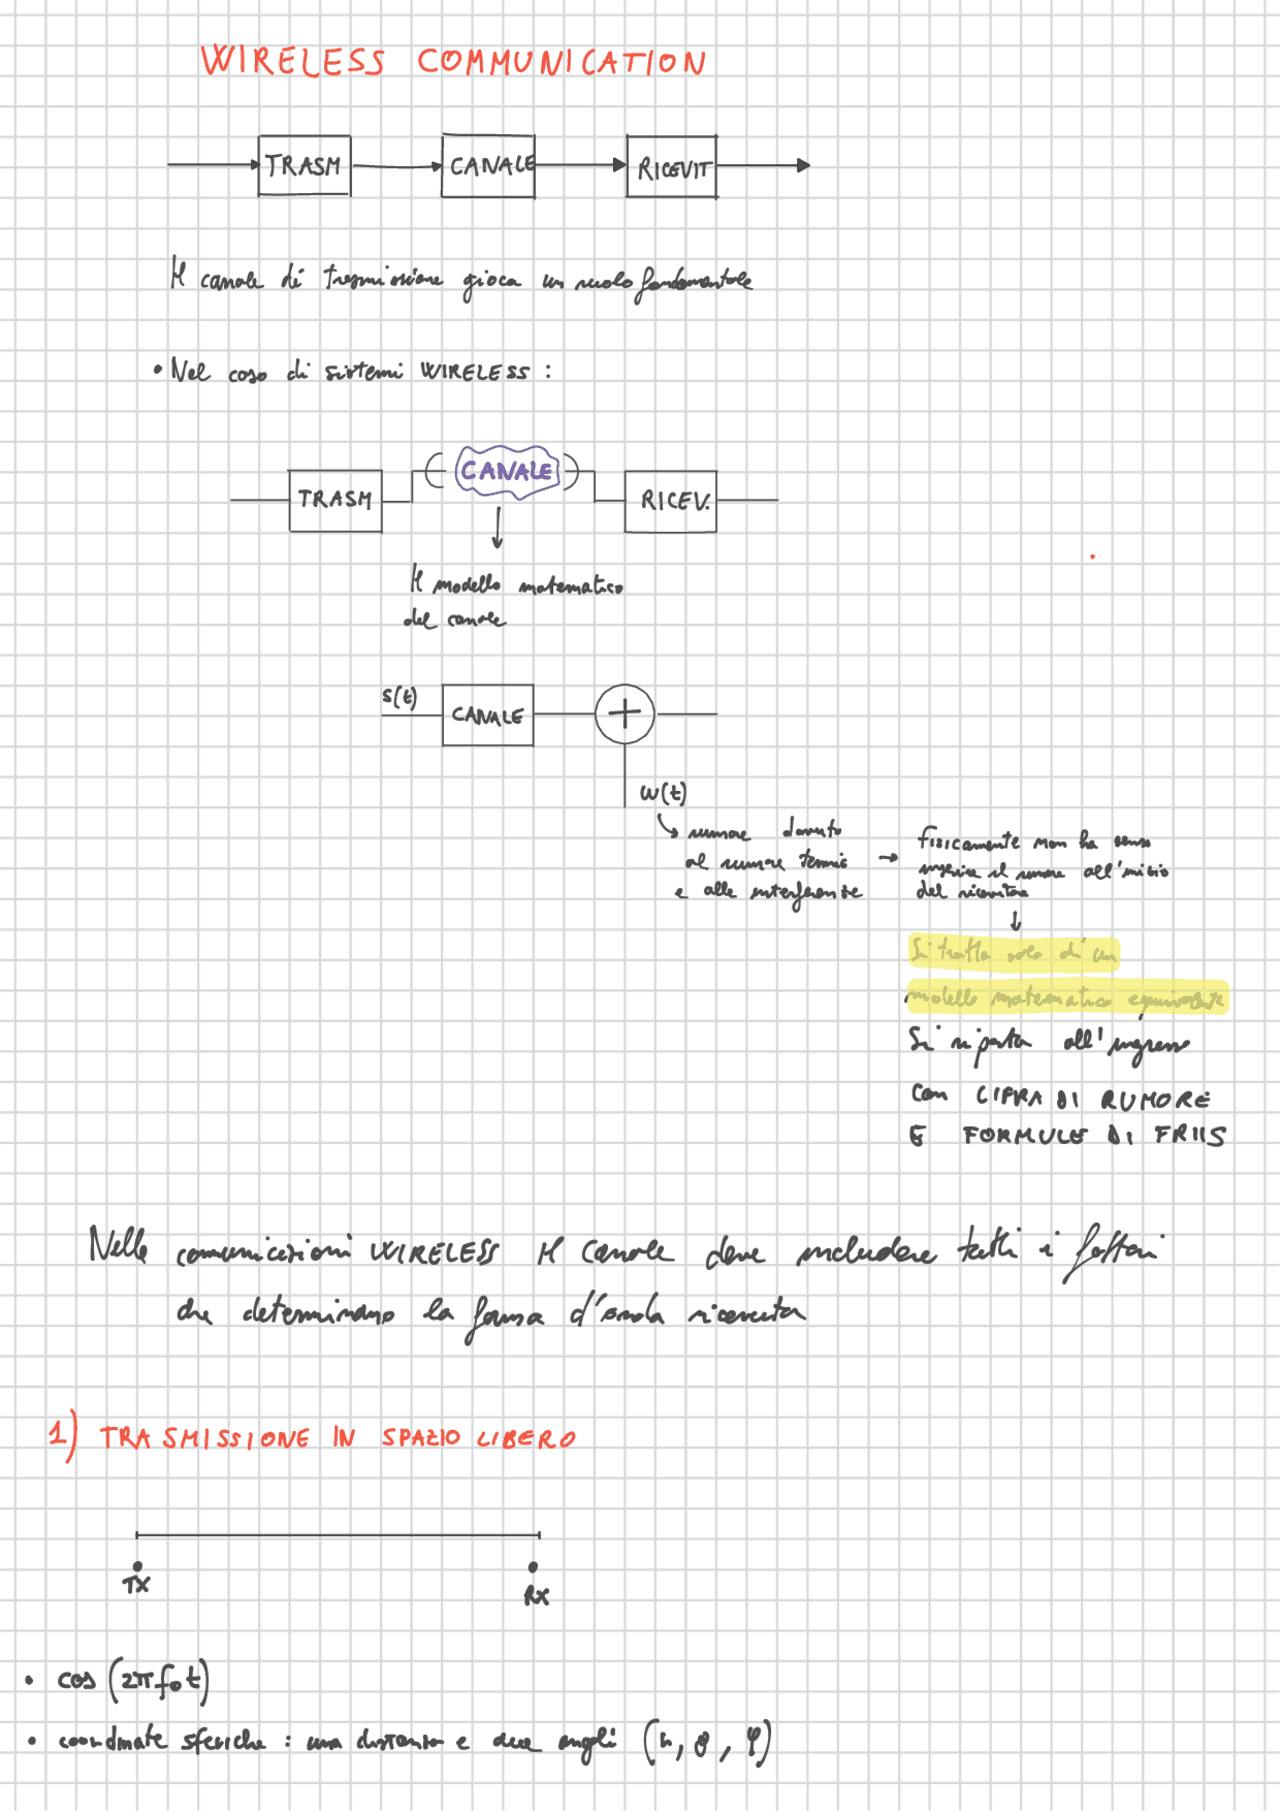 WIRELESS COMMUNICATION
TRASM
CANALE
RICEVIT
Il canale di trasmissione gioca un ruolo fondamentale
• Nel caso di sistemi WIRELESS :
TRASM
CANALE
RICEV.
Il modello matematico
del canale
s(t)
CANALE
+
w(t)
rumore dovuto
al rumore termic
e alle interferenze
fisicamente non ha senso
inserire il rumore all'inizio
del ricevitore
Si tratta solo di un
modello matematico equivalente
Si riporta all'ingresso
con CIFRA DI RUMORE
E FORMULE DI FRIIS
Nelle comunicazioni WIRELESS il canale deve includere tutti i fattori
che determinano la forma d'onda ricevuta
1) TRASMISSIONE IN SPAZIO LIBERO
TX
RX
• cos (2πf₀t)
• coordinate sferiche : una distanza e due angoli (r, θ, φ)